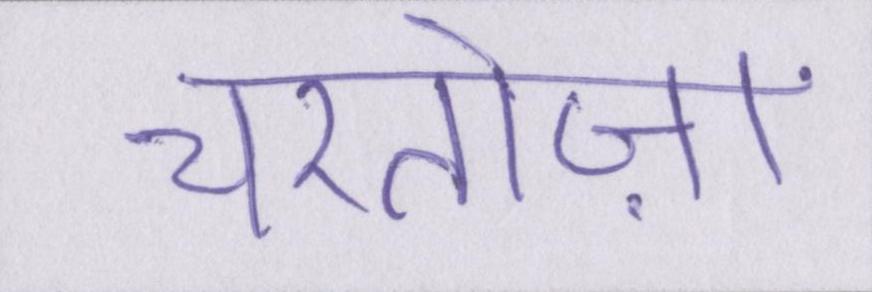 चरतोज़ां